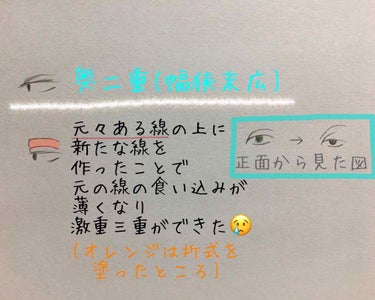 奥二重(幅狭末広)
元々ある線の上に
新たな線を
作ったことで
元の線の食い込みが
薄くなり
激重三重ができた😢
(オレンジは折式を
塗ったところ)
→
正面から見た図